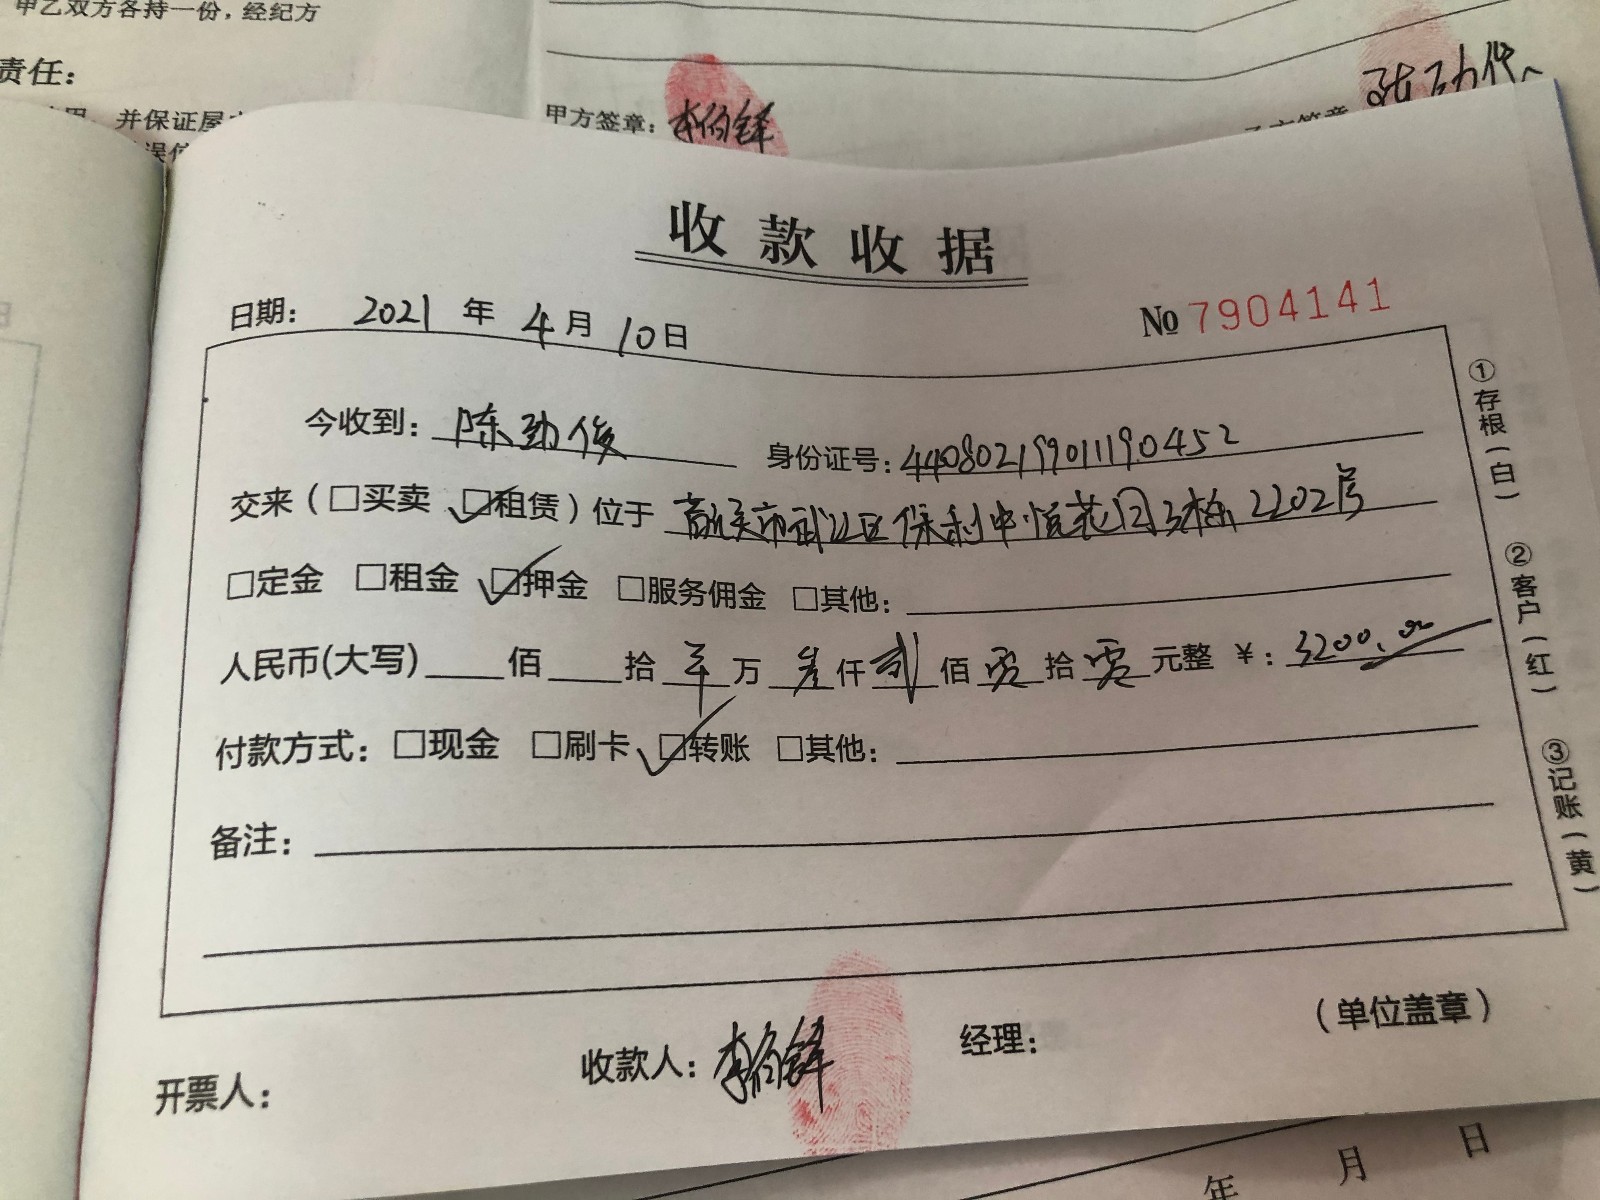 甲乙双方各持一份，经纪方
责任：
并保证屋
甲方签章：李伯锋
收款收据
日期： 2021 年 4 月 10 日
№ 7904141
今收到： 陈劲俊 身份证号：440802199011190452
交来（□买卖 ☑租赁）位于 市武江区保利中悦花园3栋2202房
□定金 □租金 ☑押金 □服务佣金 □其他：
人民币(大写) 佰 拾 万 叁仟贰佰零拾零元整 ￥：3200.00
付款方式：□现金 □刷卡 ☑转账 □其他：
备注：
①存根（白）
②客户（红）
③记账（黄）
（单位盖章）
开票人： 收款人：李伯锋 经理：
年 月 日